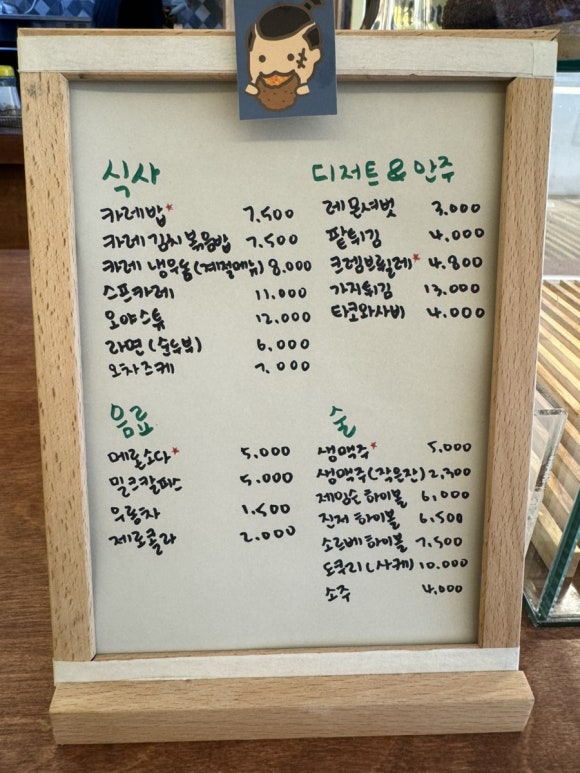 식사
카레밥* 7,500
카레 김치볶음밥 7,500
카레 냉우동(계절메뉴) 8.000
스프카레 11.000
오야스튜 12.000
라면(순두부) 6.000
오차즈케 7.000
디저트 & 안주
레몬셔벗 3.000
팥튀김 4.000
크렘브륄레* 4.800
가지튀김 13.000
타코와사비 4.000
음료
메론소다* 5.000
밀크칼피스 5.000
우롱차 1.500
제로콜라 2.000
술
생맥주* 5.000
생맥주(작은잔) 2,300
제임슨 하이볼 6,000
진저 하이볼 6,500
소르베 하이볼 7,500
도쿠리(사케) 10.000
소주 4,000